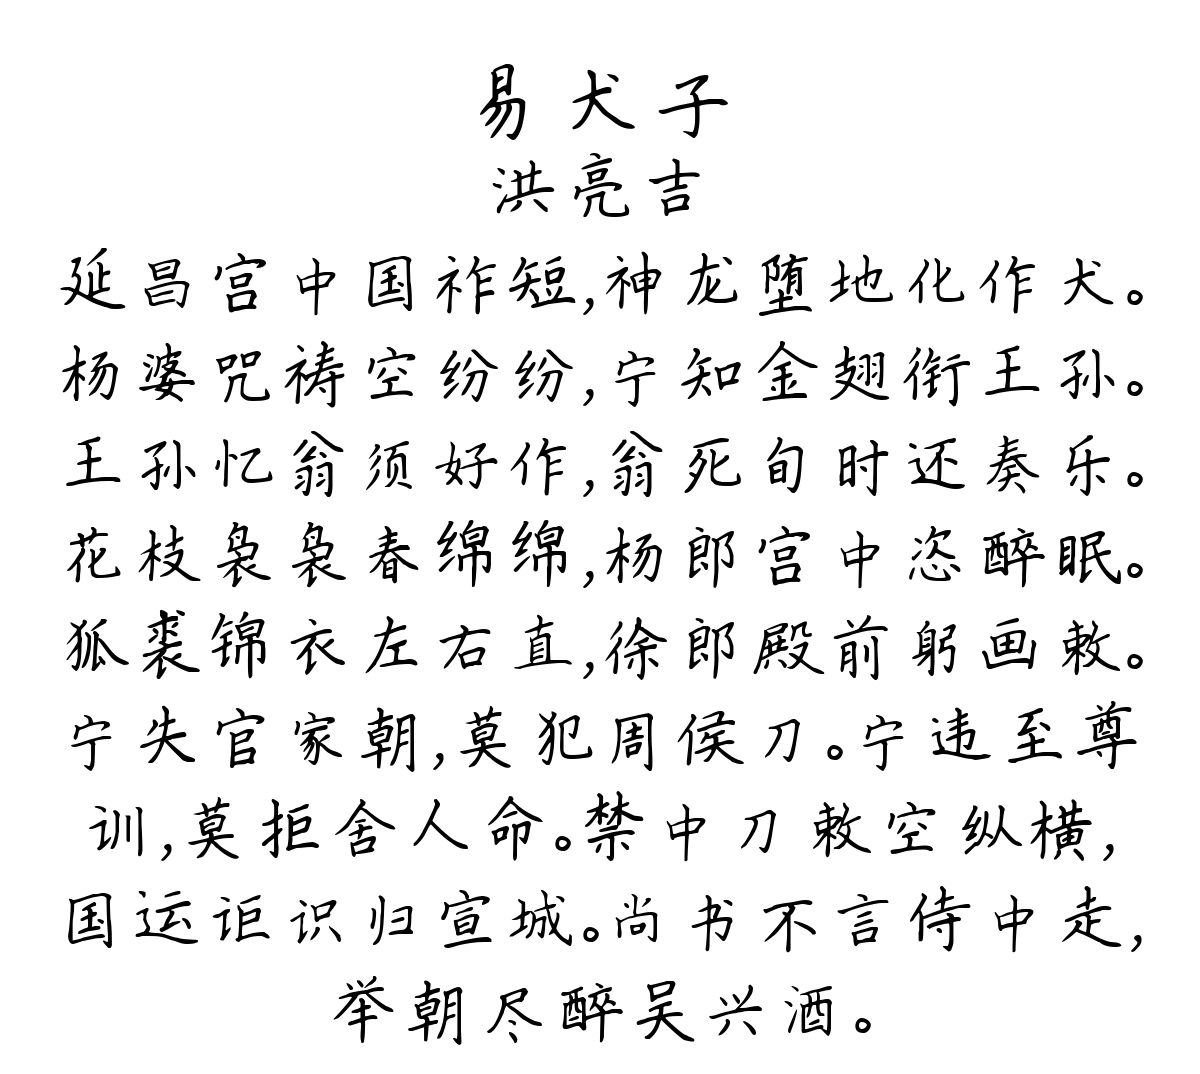 易犬子
洪亮吉
延昌宫中国祚短,神龙堕地化作犬。
杨婆咒祷空纷纷,宁知金翅衔王孙。
王孙忆翁须好作,翁死旬时还奏乐。
花枝袅袅春绵绵,杨郎宫中恣醉眠。
狐裘锦衣左右直,徐郎殿前躬画敕。
宁失官家朝,莫犯周侯刀。宁违至尊
训,莫拒舍人命。禁中刀敕空纵横,
国运讵识归宣城。尚书不言侍中走,
举朝尽醉吴兴酒。